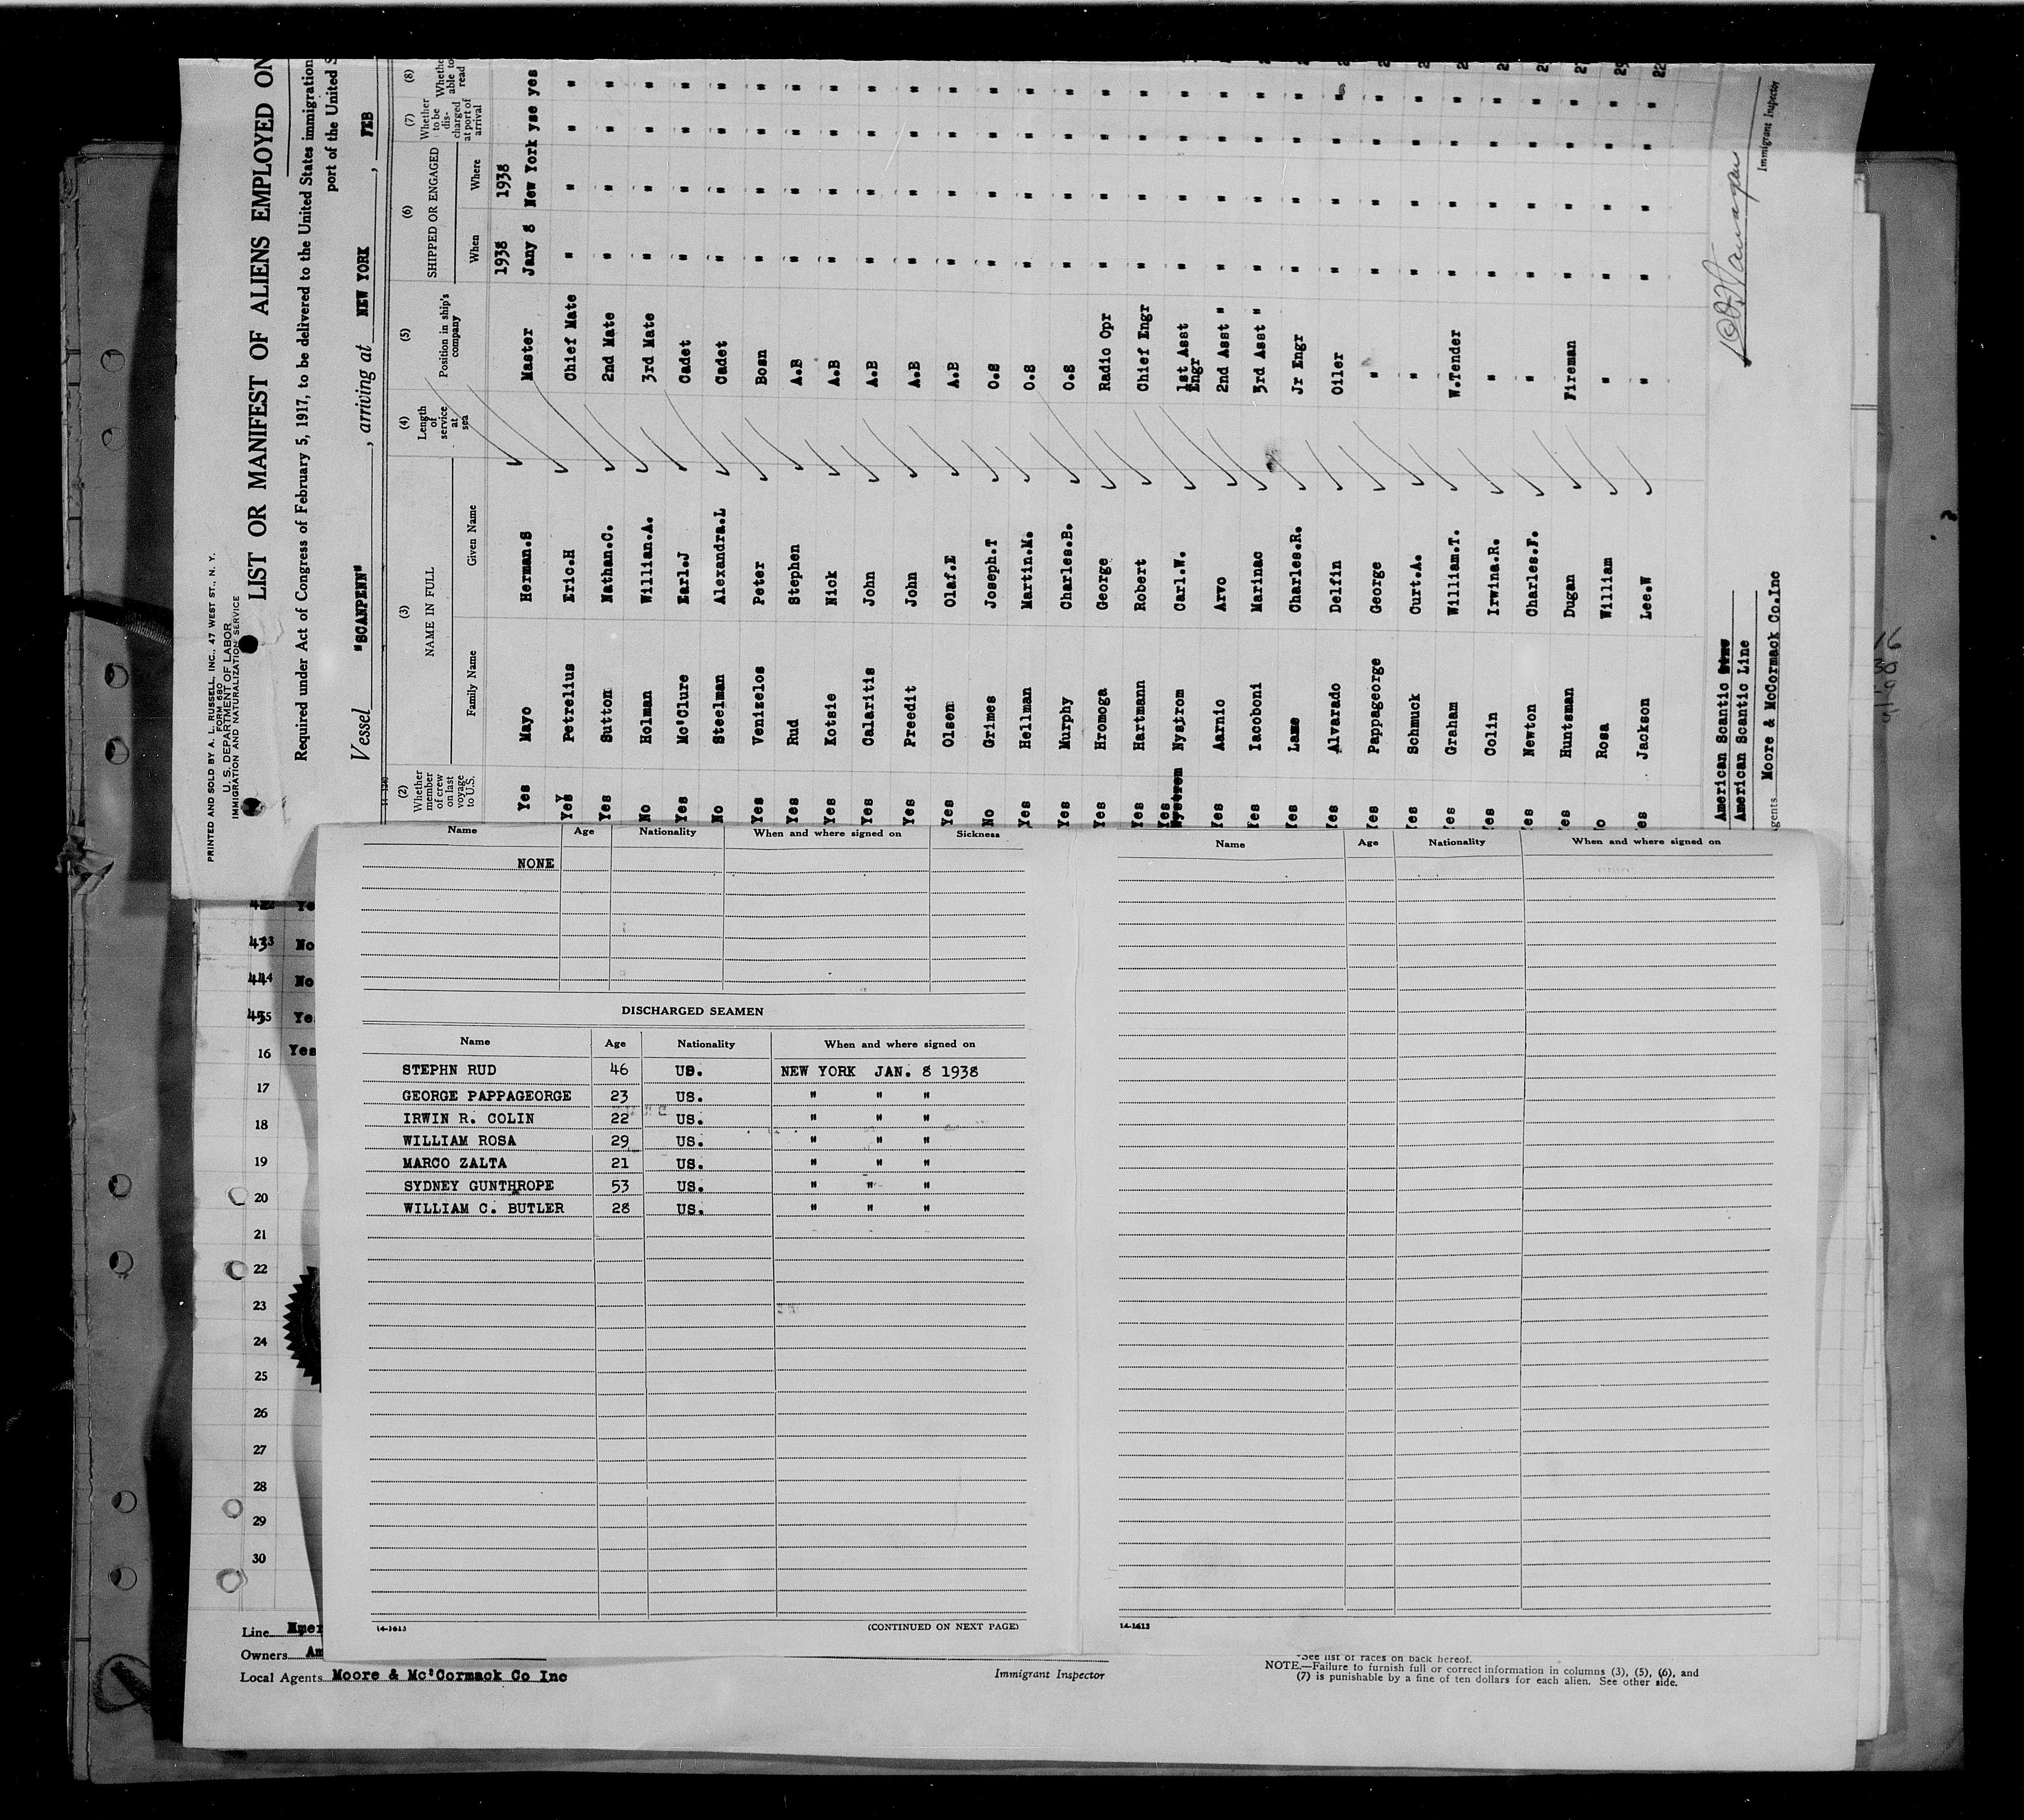 PRINTED AND SOLD BY A. L. RUSSELL, INC., 47 WEST ST., N. Y.
FORM 680
U. S. DEPARTMENT OF LABOR
IMMIGRATION AND NATURALIZATION SERVICE
LIST OR MANIFEST OF ALIENS EMPLOYED ON
Required under Act of Congress of February 5, 1917, to be delivered to the United States immigration
port of the United S
Vessel "SCANPENN", arriving at NEW YORK, FEB
(2) (3) (4) (5) (6) (7) (8)
Whether member of crew on last voyage to U.S. NAME IN FULL Length of service at sea Position in ship's company SHIPPED OR ENGAGED Whether to be discharged at port of arrival Whethe able to read
Family Name Given Name When Where
1938 1938
Yes Mayo Herman.S Master Jany 8 New York yse yes
Yes Petrelius Eric.H Chief Mate " " " "
Yes Sutton Nathan.C. 2nd Mate " " " "
No Holman Willian.A. 3rd Mate " " " "
Yes McClure Earl.J Cadet " " " "
No Steelman Alexandra.L Cadet " " " "
Yes Venizelos Peter Bosn " " " "
Yes Rud Stephen A.B " " " "
Yes Kotsie Nick A.B " " " "
Yes Calaritis John A.B " " " "
Yes Preedit John A.B " " " "
Yes Olsen Olaf.E A.B " " " "
No Grimes Joseph.T O.S " " " "
Yes Hellman Martin.M. O.S " " " "
Yes Murphy Charles.B. O.S " " " "
Yes Hromoga George Radio Opr " " " "
Yes Hartmann Robert Chief Engr " " " "
Yes Nystrom Carl.W. 1st Asst Engr " " " "
Yes Aarnio Arvo 2nd Asst " " " " "
Yes Iacoboni Marinac 3rd Asst " " " " "
Yes Lame Charles.R. Jr Engr " " " "
Yes Alvarado Delfin Oiler " " " "
Yes Pappageorge George " " " " "
Yes Schmuck Curt.A. " " " " "
Yes Graham William.T. W.Tender " " " "
es Colin Irwina.R. " " " " "
es Newton Charles.F. " " " " "
es Huntsman Dugan Fireman " " " "
o Rosa William " " " " "
es Jackson Lee.W " " " " "
American Scantic
American Scantic Line
gents Moore & McCormack Co.Inc
Immigrant Inspector
Name Age Nationality When and where signed on Sickness
NONE
DISCHARGED SEAMEN
Name Age Nationality When and where signed on
STEPHN RUD 46 US. NEW YORK JAN. 8 1938
GEORGE PAPPAGEORGE 23 US. " " "
IRWIN R. COLIN 22 US. " " "
WILLIAM ROSA 29 US. " " "
MARCO ZALTA 21 US. " " "
SYDNEY GUNTHROPE 53 US. " " "
WILLIAM C. BUTLER 28 US. " " "
14-1613 (CONTINUED ON NEXT PAGE)
Name Age Nationality When and where signed on
14-1613
43 No
44 No
45 Ye
16 Yes
17
18
19
20
21
22
23
24
25
26
27
28
29
30
Line
Owners Am
Local Agents Moore & Mc'Cormack Co Inc
Immigrant Inspector
*See list of races on back hereof.
NOTE.—Failure to furnish full or correct information in columns (3), (5), (6), and
(7) is punishable by a fine of ten dollars for each alien. See other side.